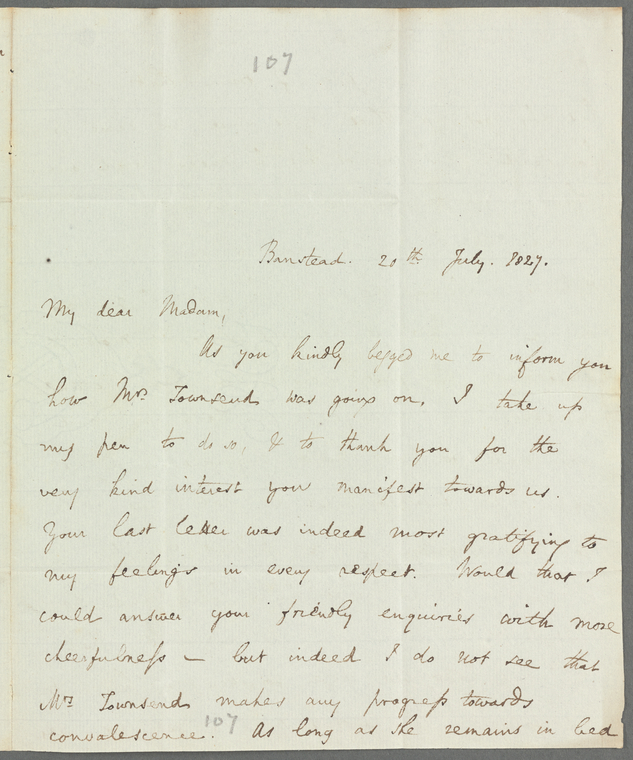 107
Banstead. 20th July. 1827.
My dear Madam,
As you kindly begged me to inform you
how Mrs Townsend was going on, I take up
my pen to do so, & to thank you for the
very kind interest you manifest towards us.
Your last letter was indeed most gratifying to
my feelings in every respect. Would that I
could answer your friendly enquiries with more
cheerfulness – but indeed I do not see that
Mrs Townsend makes any progress towards
convalescence. As long as she remains in bed
107